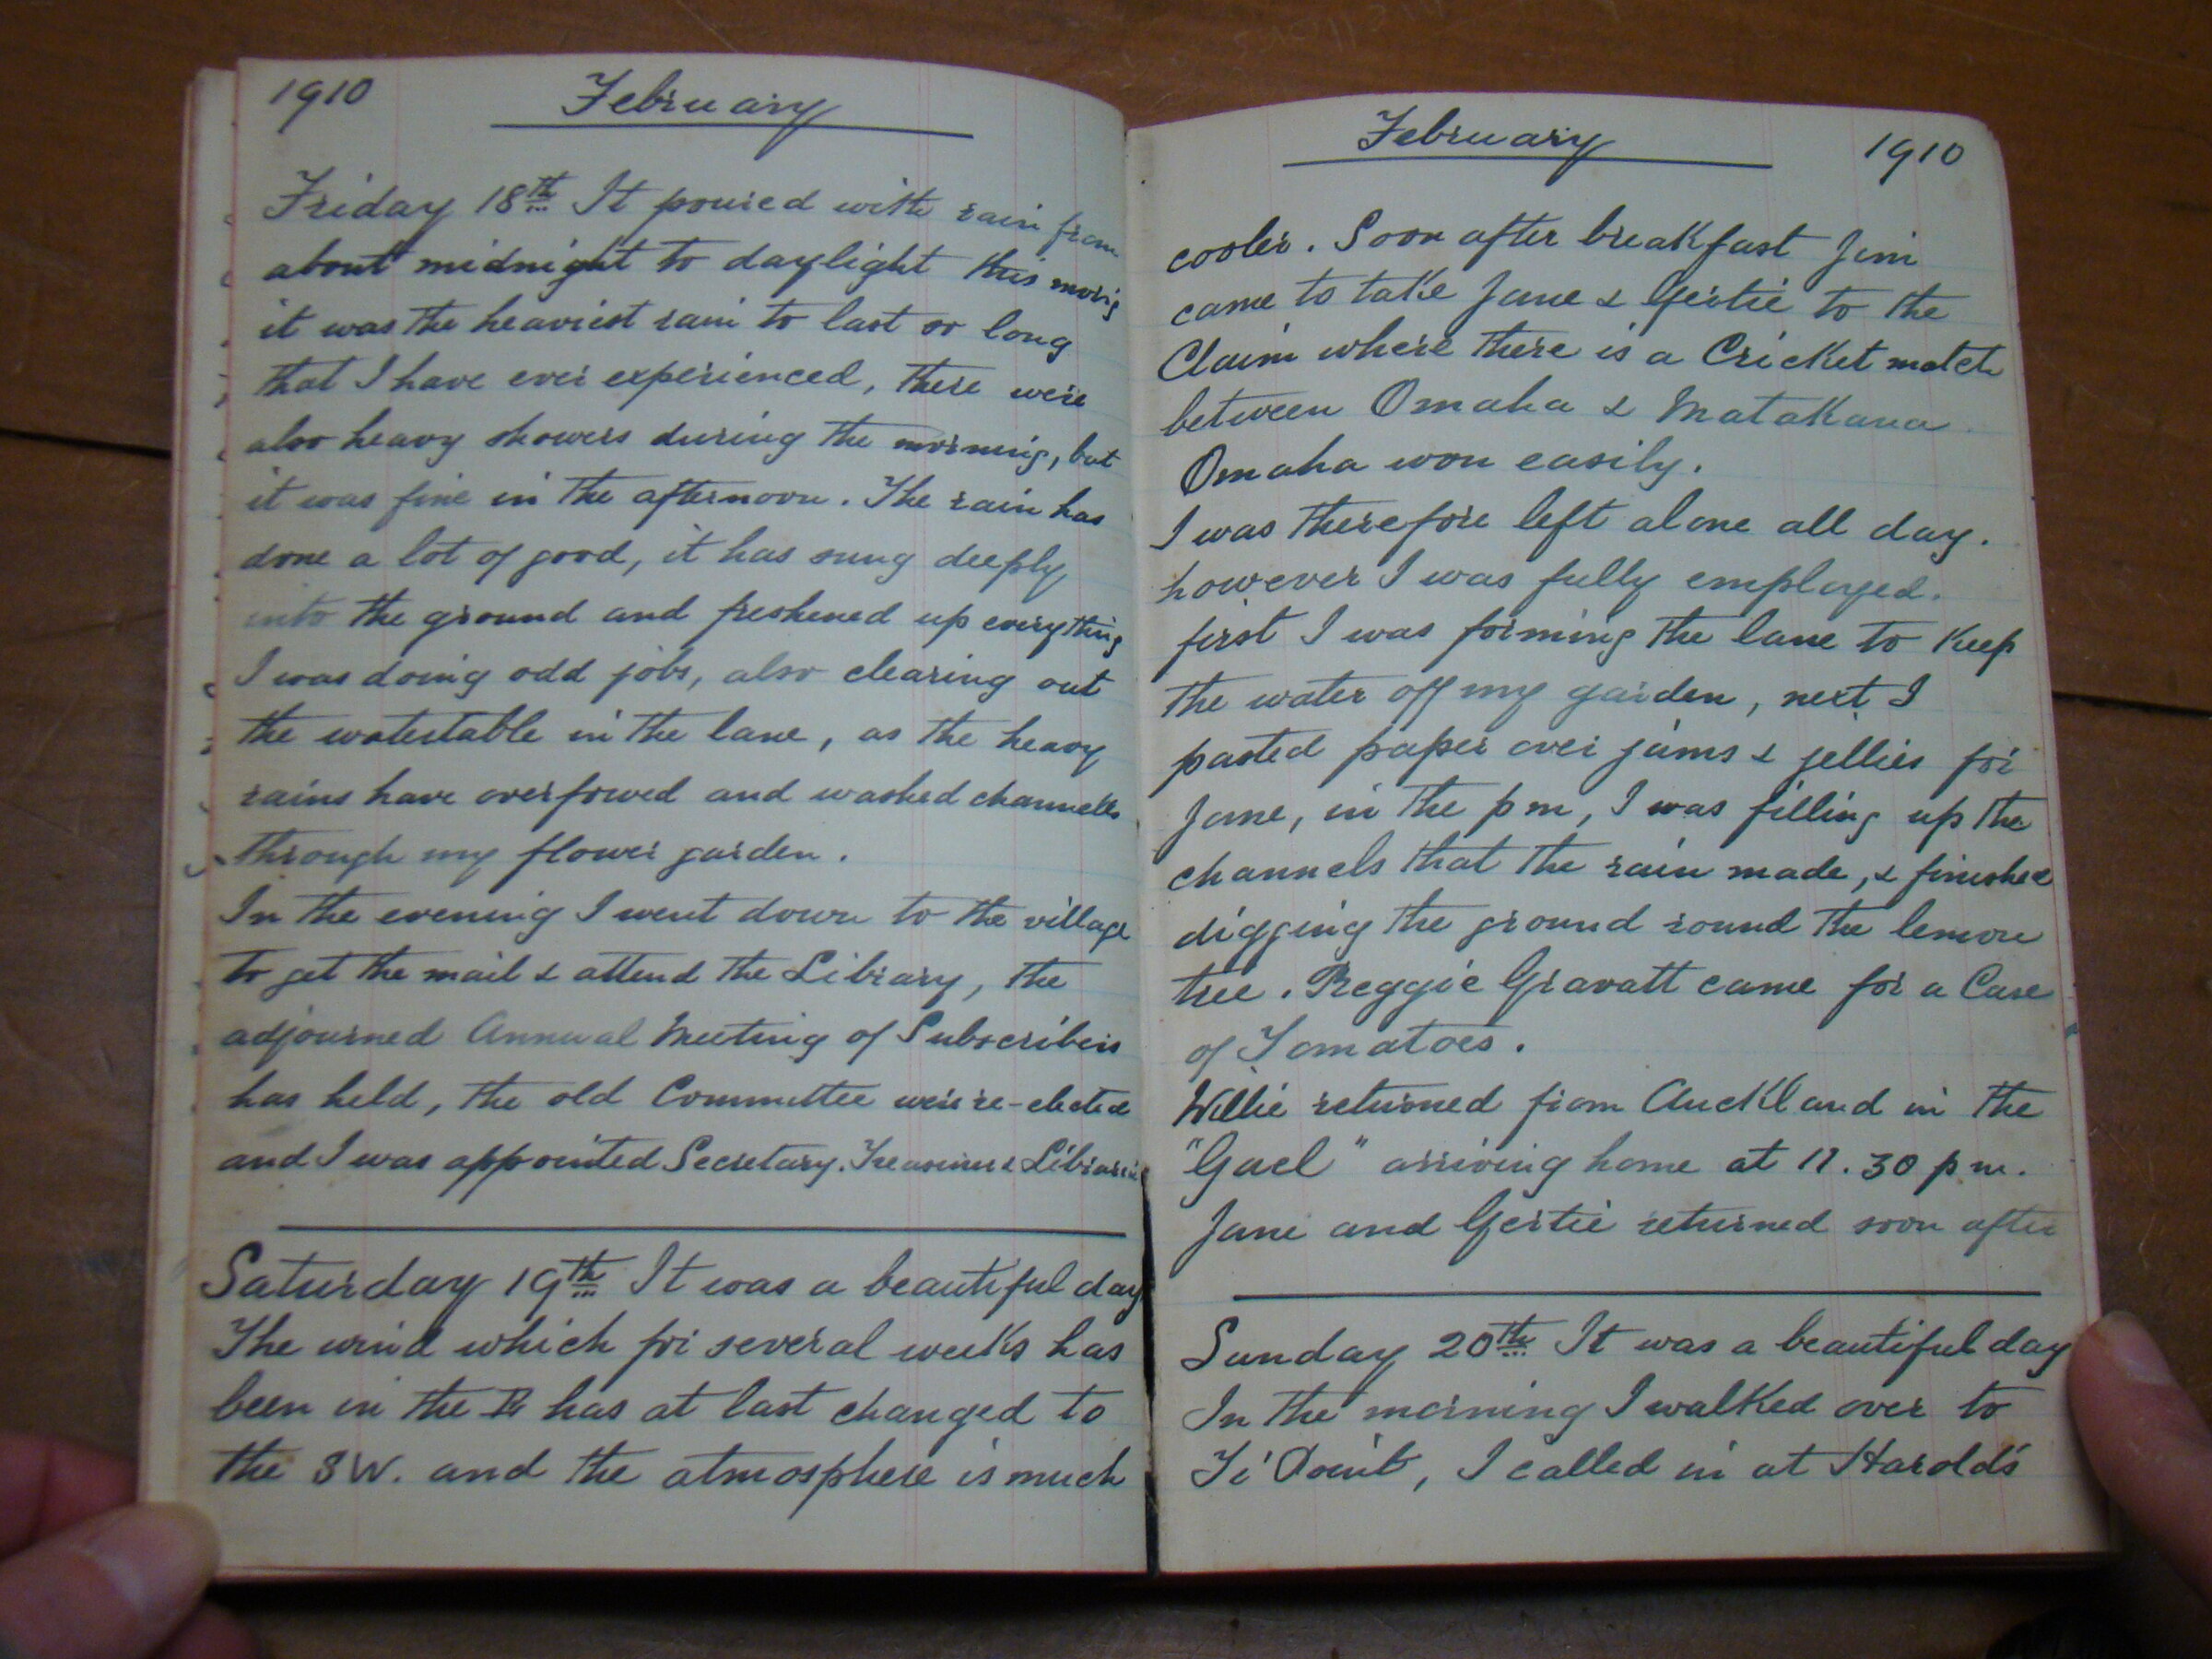 1910 February
Friday 18th It poured with rain from
about midnight to daylight this morng
it was the heaviest rain to last so long
that I have ever experienced, there were
also heavy showers during the morning, but
it was fine in the afternoon. The rain has
done a lot of good, it has sung deeply
into the ground and freshened up everything
I was doing odd jobs, also clearing out
the watertable in the lane, as the heavy
rains have overfowed and washed channells
through my flower garden.
In the evening I went down to the village
to get the mail & attend the Library, the
adjourned Annual Meeting of Subscribers
has held, the old Committee were re-elected
and I was appointed Secretary. Treasurer & Librarian
Saturday 19th It was a beautiful day
The wind which for several weeks has
been in the has at last changed to
the SW. and the atmosphere is much
February 1910
cooler. Soon after breakfast Jim
came to take Jane & Gertie to the
Claim where there is a Cricket match
between Omaha & Matakana
Omaha won easily.
I was therefore left alone all day.
however I was fully employed.
first I was forming the lane to keep
the water off my garden, next I
pasted paper over jams & jellies for
Jane, in the pm, I was filling up the
channels that the rain made, & finished
digging the ground round the lemon
tree. Reggie Gravatt came for a Case
of Tomatoes.
Willie returned from Auckland in the
"Gael" arriving home at 11.30 pm.
Jane and Gertie returned soon after
Sunday 20th It was a beautiful day
In the morning I walked over to
Ti Point, I called in at Harold's